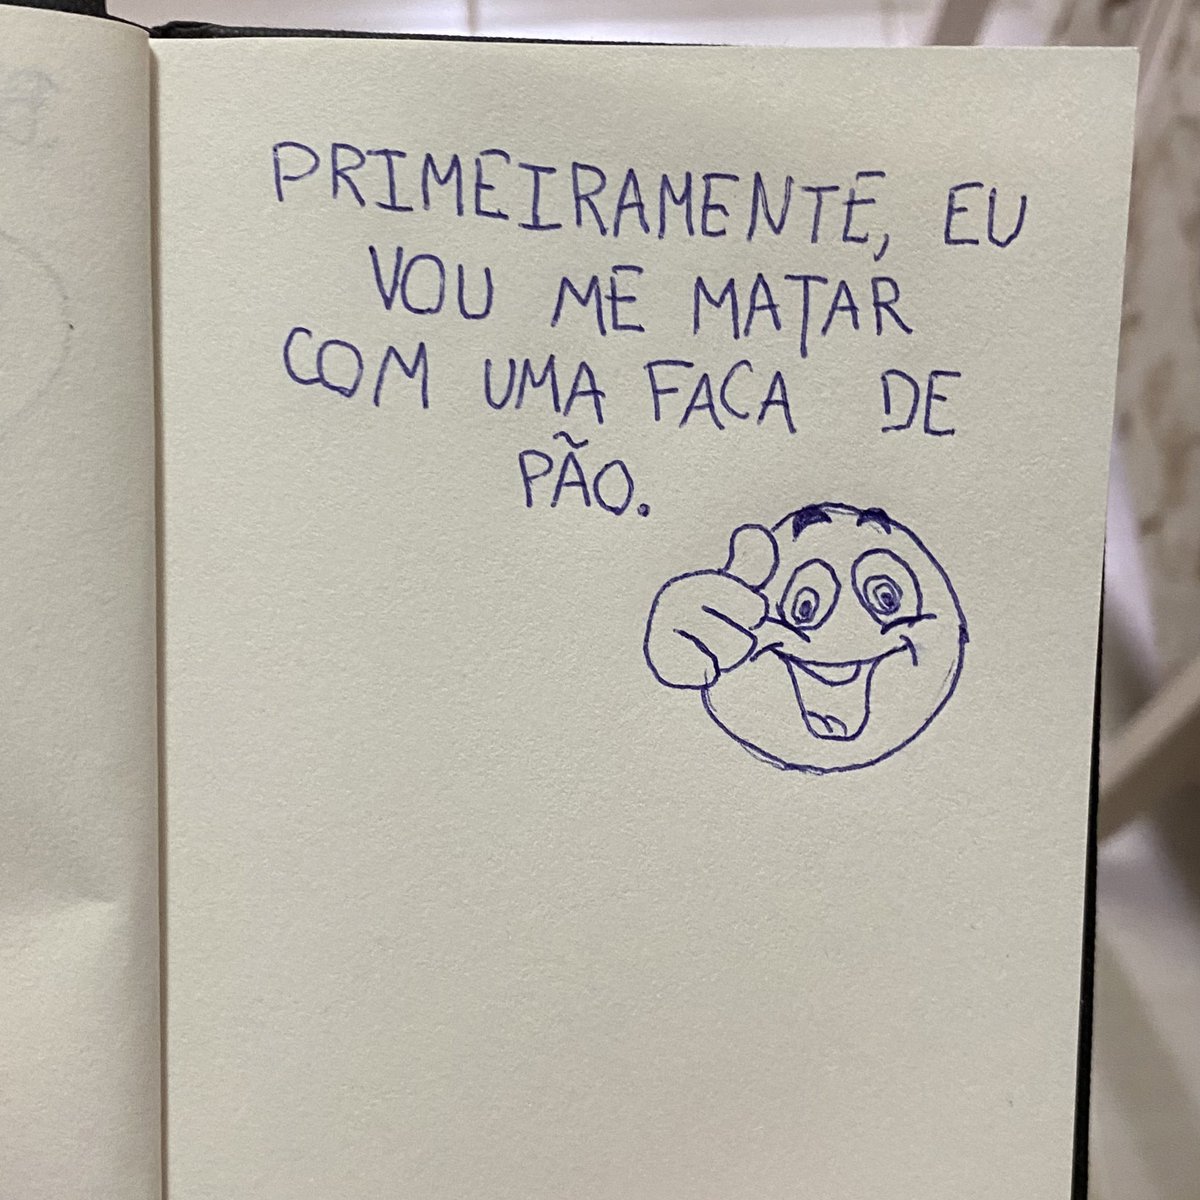 PRIMEIRAMENTE, EU
VOU ME MATAR
COM UMA FACA DE
PÃO.